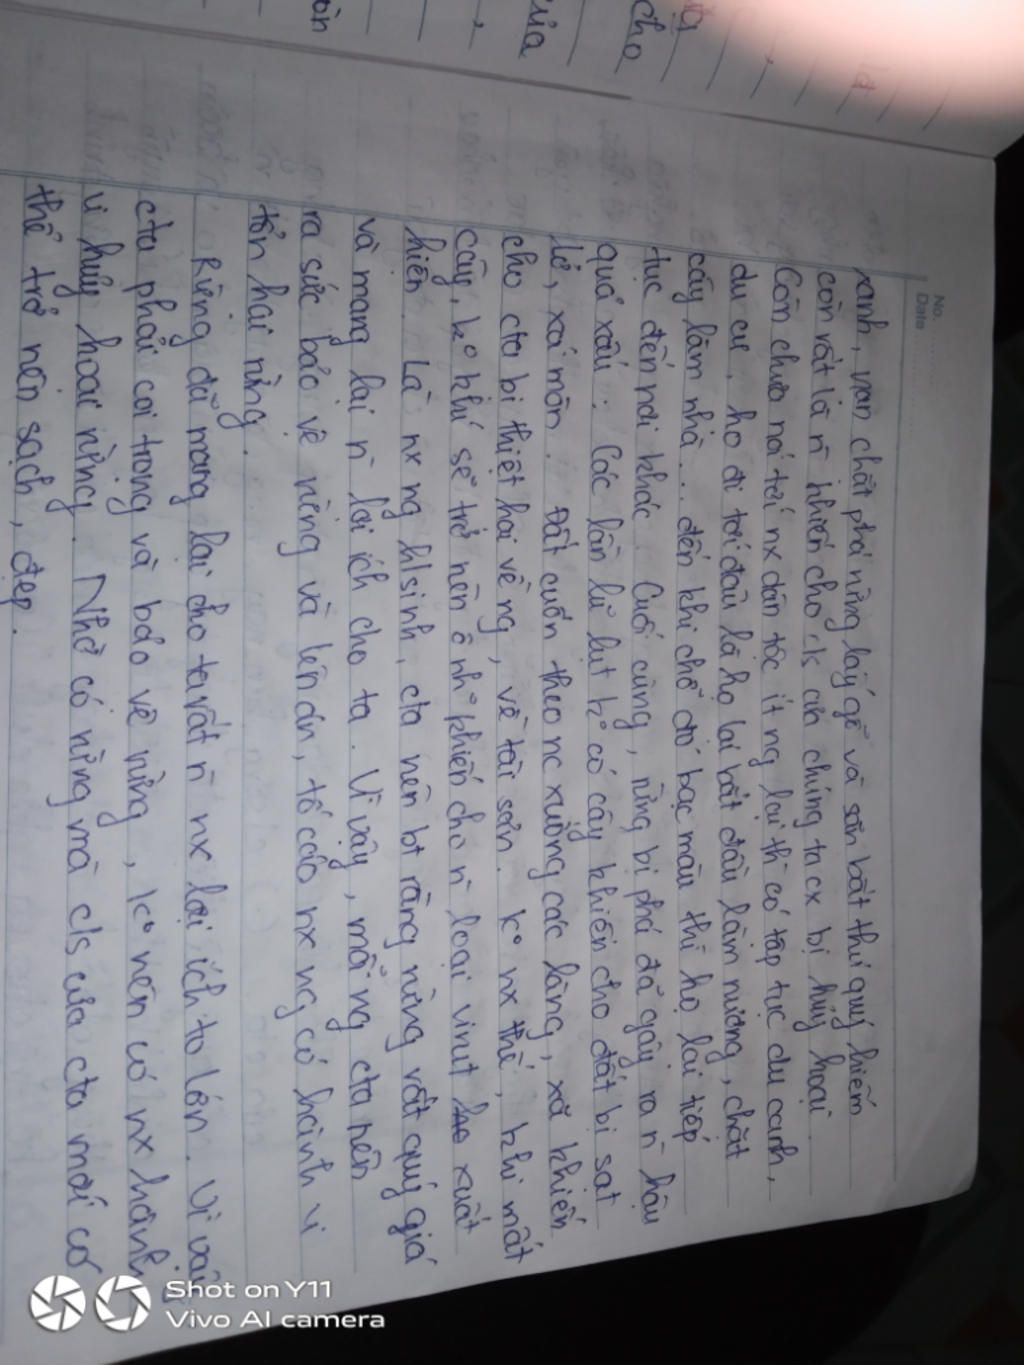 ồn
của
cho
No.
Date
xanh, nạn chặt phá rừng lấy gỗ và săn bắt thú quý hiếm
còn rất là n̄ khiến cho c/s của chúng ta cx bị hủy hoại.
Còn chưa nói tới nx dân tộc ít ng lại thì có tập tục du canh,
du cư, họ đi tới đâu là họ lại bắt đầu làm nương, chặt
cây làm nhà... đến khi chỗ đó bạc màu thì họ lại tiếp
tục đến nơi khác. Cuối cùng, rừng bị phá đã gây ra n̄ hậu
quả xấu. Các lần lũ lụt k° có cây khiến cho đất bị sạt
lở, xói mòn. Đất cuốn theo nc xuống các làng, xã khiến
cho cta bị thiệt hại về ng, về tài sản. k° nx thế, khi mất
cây, k° khí sẽ trở nên ô nh° khiến cho n̄ loại virut xuất
hiện. Là nx ng h/sinh, cta nên bt rằng rừng rất quý giá
và mang lại n̄ lợi ích cho ta. Vì vậy, mỗi ng cta nên
ra sức bảo vệ rừng và lên án, tố cáo nx ng có hành vi
tổn hại rừng.
Rừng đã mang lại cho ta rất n̄ nx lợi ích to lớn. Vì vậy
cta phải coi trọng và bảo vệ rừng, k° nên có nx hành
vi hủy hoại rừng. Nhờ có rừng mà c/s của cta mới có
thể trở nên sạch, đẹp.
Shot on Y11
Vivo AI camera